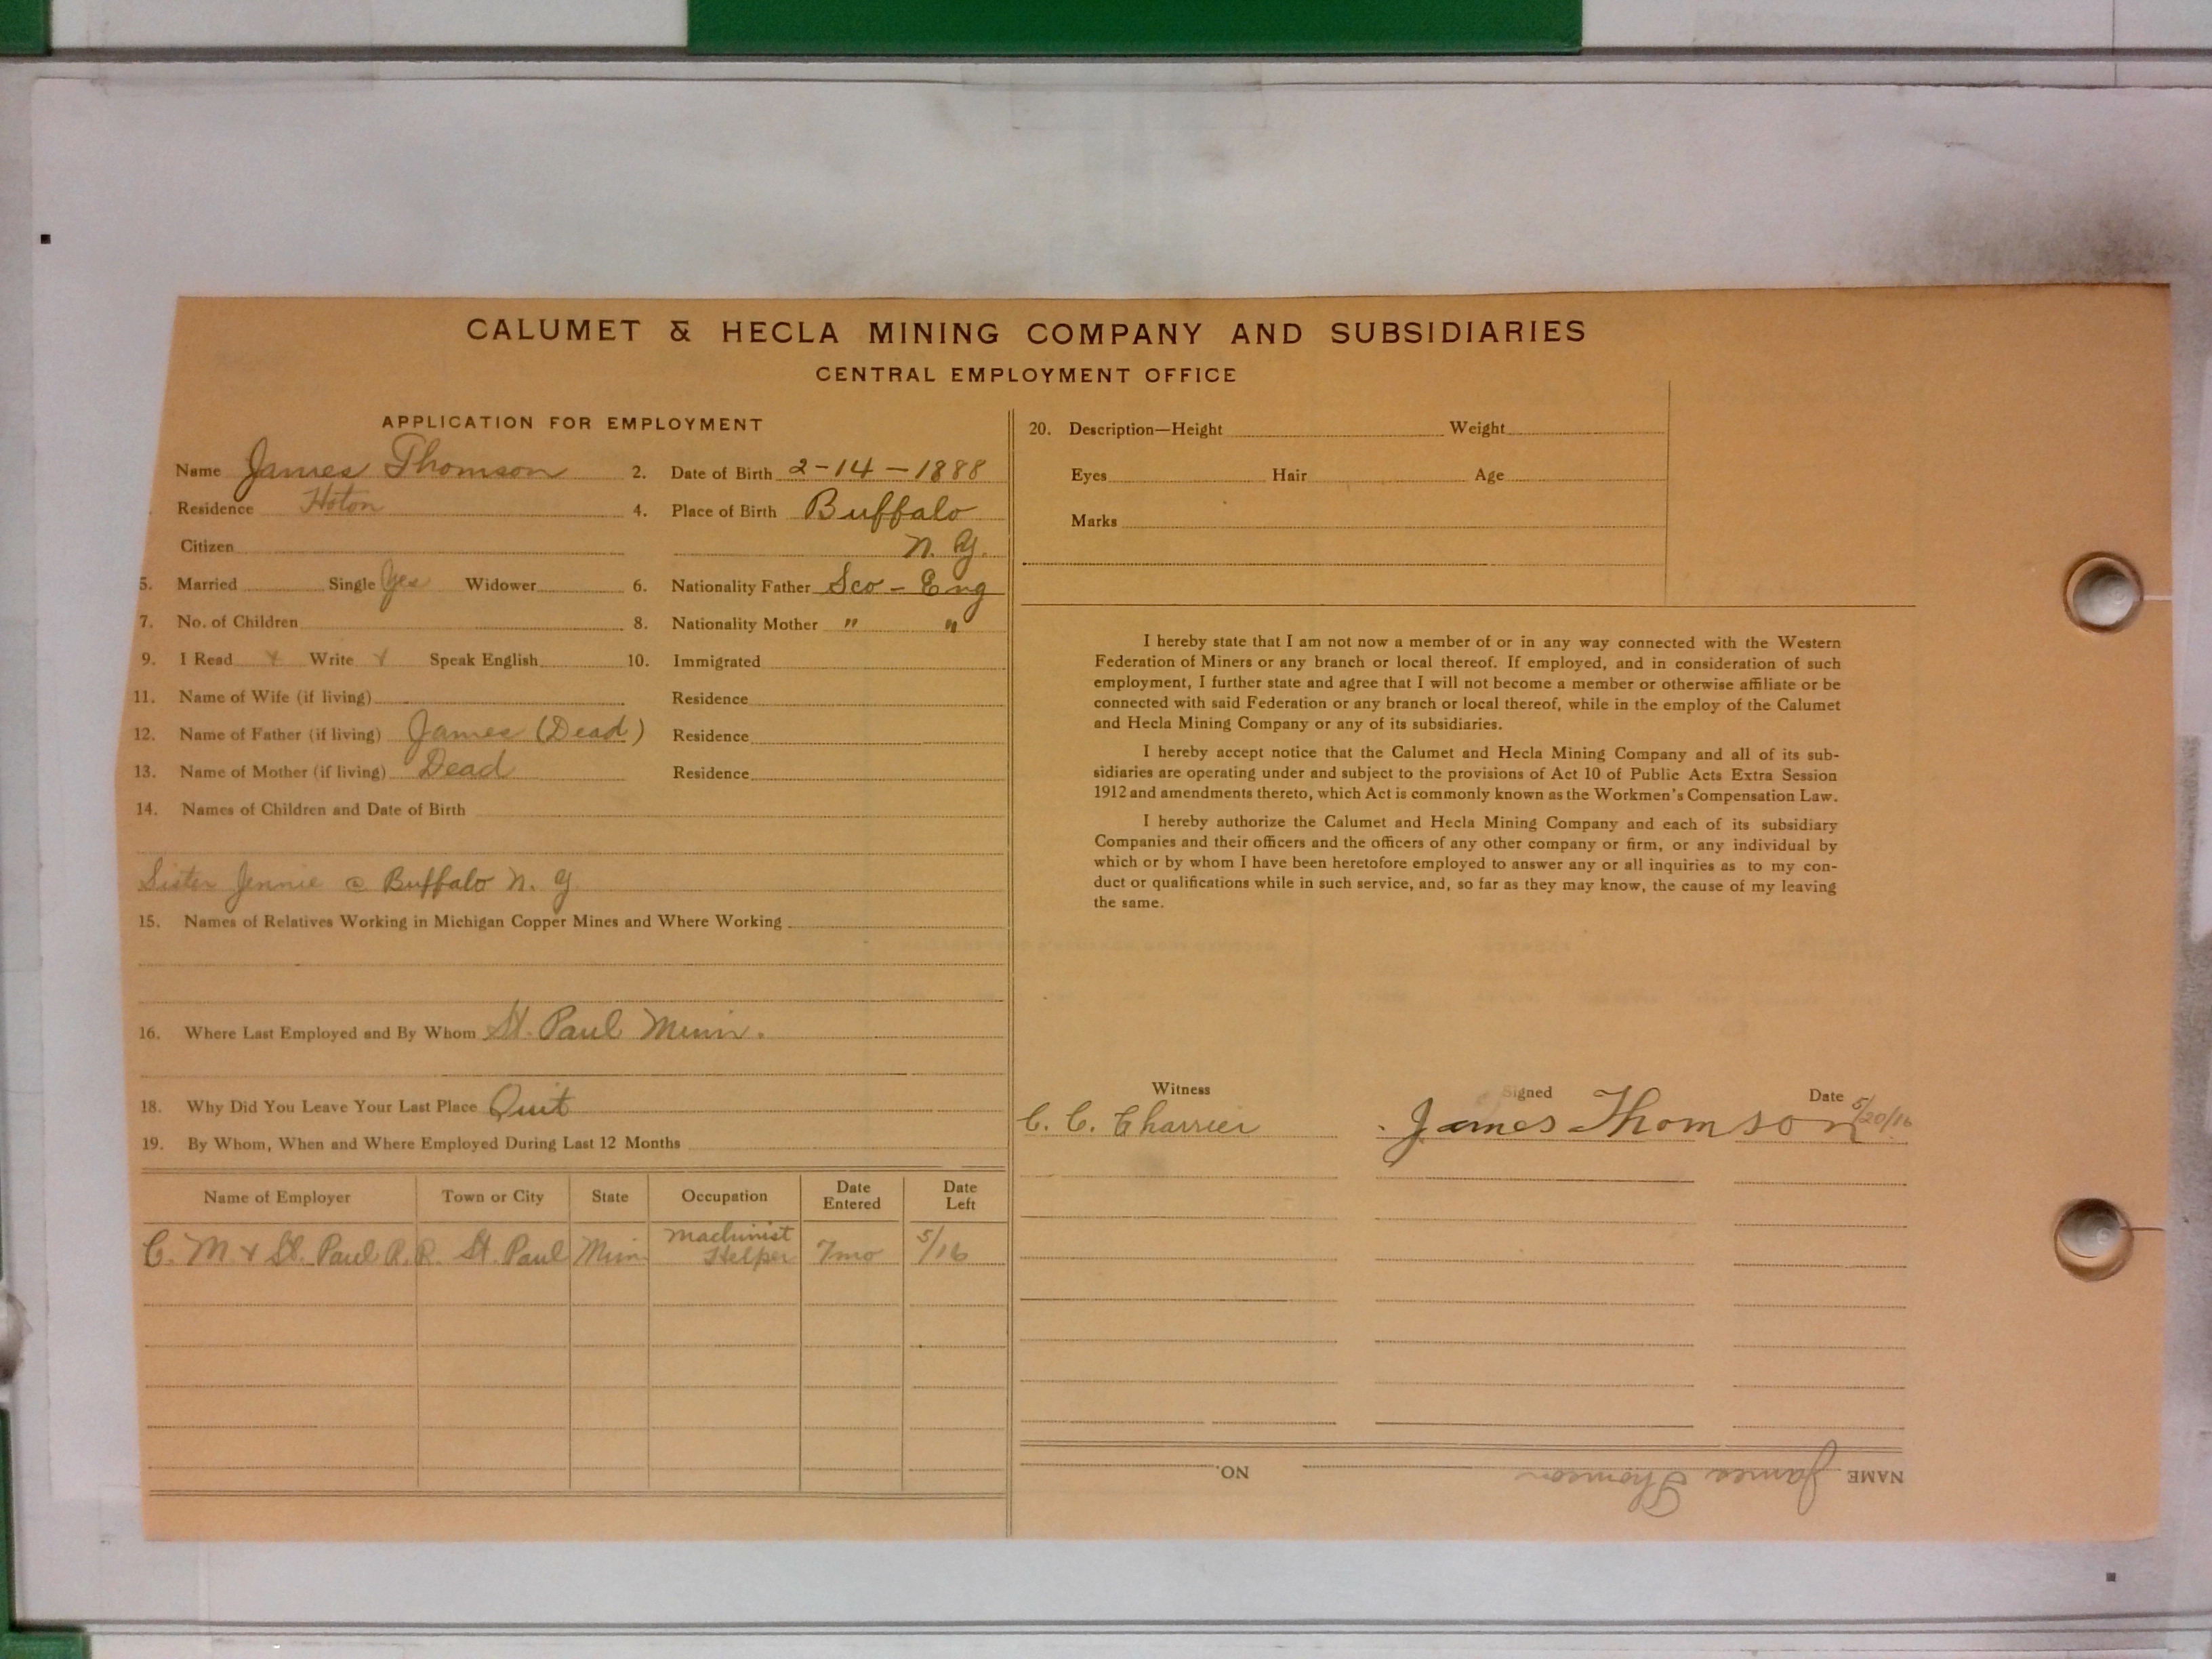 CALUMET & HECLA MINING COMPANY AND SUBSIDIARIES
CENTRAL EMPLOYMENT OFFICE
APPLICATION FOR EMPLOYMENT
Name James Thomson 2. Date of Birth 2-14-1888
Residence Hoton 4. Place of Birth Buffalo
Citizen N. Y.
5. Married Single Yes Widower 6. Nationality Father Sco - Eng
7. No. of Children 8. Nationality Mother " "
9. I Read Y Write Y Speak English 10. Immigrated
11. Name of Wife (if living) Residence
12. Name of Father (if living) James (Dead) Residence
13. Name of Mother (if living) Dead Residence
14. Names of Children and Date of Birth
Sister Jennie @ Buffalo N. Y.
15. Names of Relatives Working in Michigan Copper Mines and Where Working
16. Where Last Employed and By Whom St. Paul Minn.
18. Why Did You Leave Your Last Place Quit
19. By Whom, When and Where Employed During Last 12 Months
Name of Employer Town or City State Occupation Date Entered Date Left
C. M & St. Paul R. R. St. Paul Minn Machinist Helper 7 mo 5/16
20. Description—Height Weight
Eyes Hair Age
Marks
I hereby state that I am not now a member of or in any way connected with the Western
Federation of Miners or any branch or local thereof. If employed, and in consideration of such
employment, I further state and agree that I will not become a member or otherwise affiliate or be
connected with said Federation or any branch or local thereof, while in the employ of the Calumet
and Hecla Mining Company or any of its subsidiaries.
I hereby accept notice that the Calumet and Hecla Mining Company and all of its sub-
sidiaries are operating under and subject to the provisions of Act 10 of Public Acts Extra Session
1912 and amendments thereto, which Act is commonly known as the Workmen's Compensation Law.
I hereby authorize the Calumet and Hecla Mining Company and each of its subsidiary
Companies and their officers and the officers of any other company or firm, or any individual by
which or by whom I have been heretofore employed to answer any or all inquiries as to my con-
duct or qualifications while in such service, and, so far as they may know, the cause of my leaving
the same.
Witness Signed Date
C. C. Charrier James Thomson 5/20/16
NAME James Thomson NO.